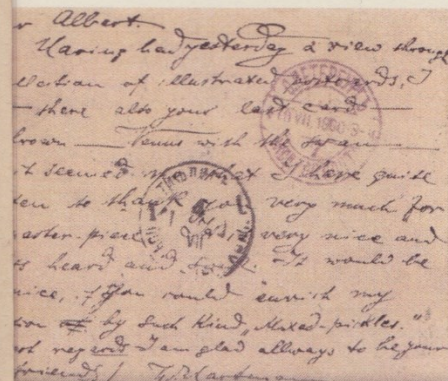 Albert.
Having had yesterday a view through
llection of illustrated postcards, I
there also your last card —
brown — Venus with the swan —
it seemed me that I have quite
ten to thank you very much for
aster-piece very nice and
heard and It would be
nice, if you would enrich my
by such kind „Mixed-pickles."
regards I am glad allways to be your
friends!